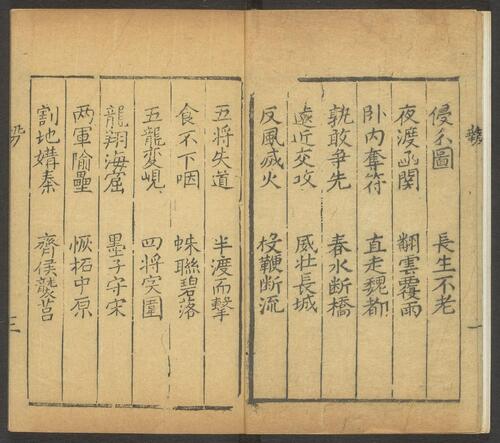 侵尔圖 長生不老
夜渡函関 翻雲覆雨
卧内奪符 直走魏都
孰敢争先 春水断橋
遠近交攻 威壮長城
反風滅火 投鞭断流
一
五将失道 半渡而擊
食不下咽 蛛聯碧落
五龍変峴 四将突圍
龍翔海窟 墨子守宋
两軍隃壘 恢拓中原
割地媾秦 齊侯襲莒
三